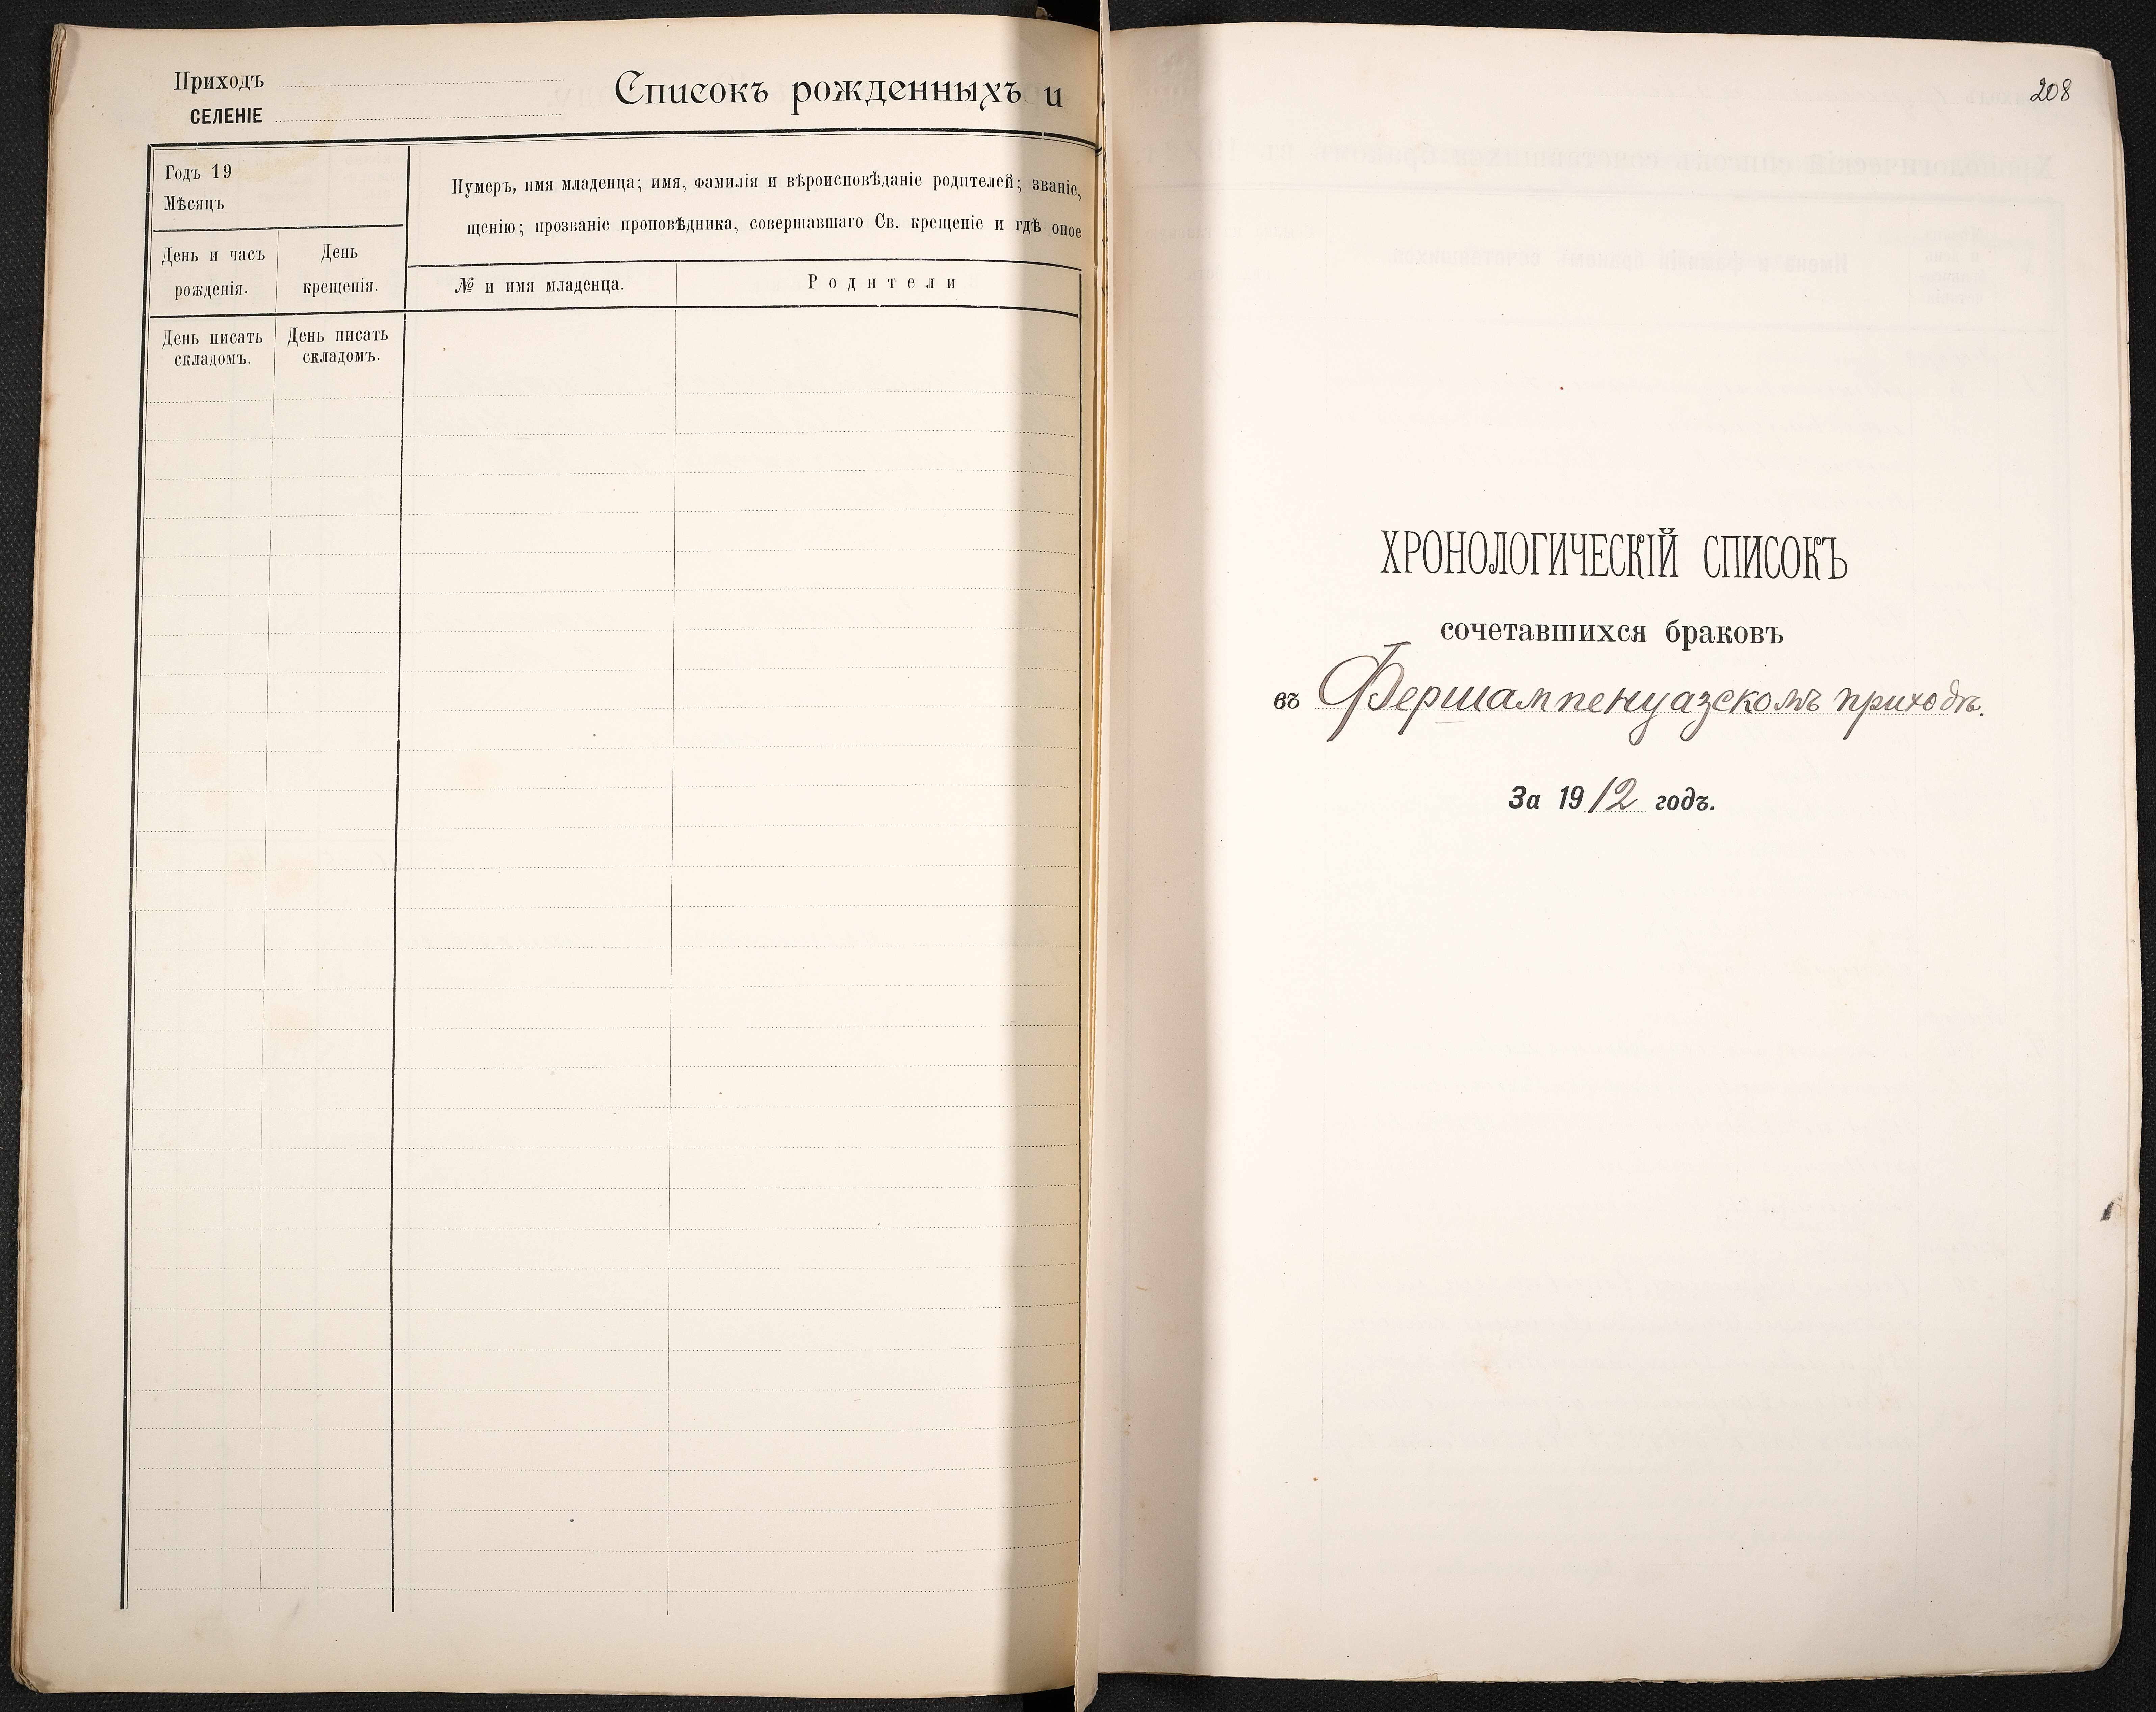 Приходъ
СЕЛЕНІЕ
Списокъ рожденныхъ и
Годъ 19
Мѣсяцъ
Нумеръ, имя младенца; имя, фамилія и вѣроисповѣданіе родителей; званіе,
щенію; прозваніе проповѣдника, совершавшаго Св. крещеніе и гдѣ оное
День и часъ рожденія.
День крещенія.
№ и имя младенца.
Родители
День писать складомъ.
День писать складомъ.
208
ХРОНОЛОГИЧЕСКІЙ СПИСОКЪ
сочетавшихся браковъ
въ Фершампенуазскомъ приходѣ.
За 1912 годъ.